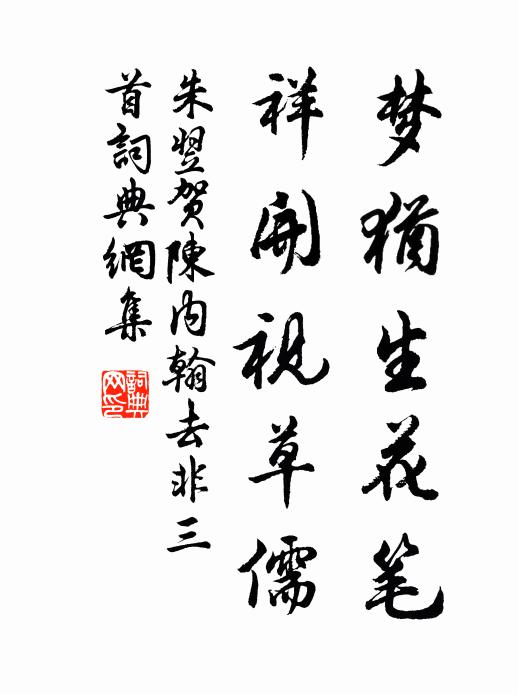 梦犹生花笔
祥開視草儒
朱翌贺陳内翰去非三
首詞典網集
詞典网印